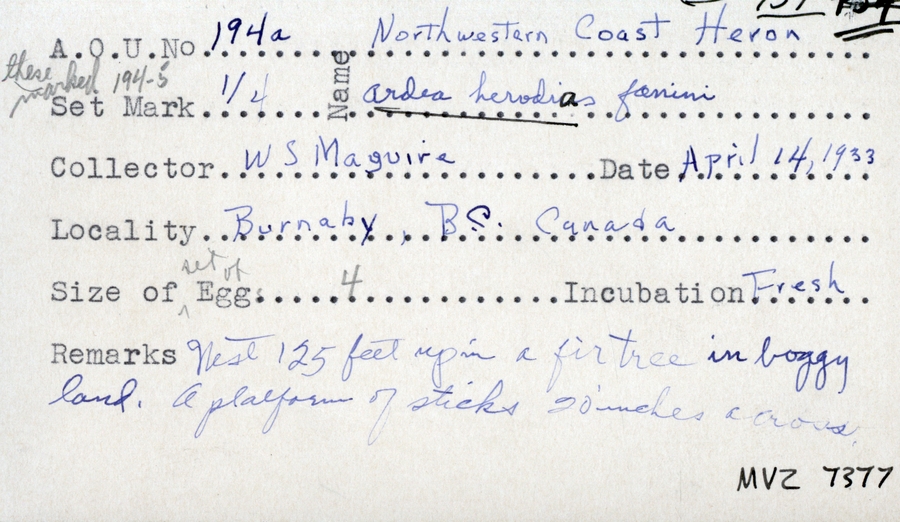 A.O.U.No. 194a Name Northwestern Coast Heron
these marked 194-5
Set Mark 1/4 ardea herodias fannini
Collector W S Maguire Date April 14, 1933
Locality Burnaby, B.C. Canada
set of
Size of ^ Eggs 4 Incubation Fresh
Remarks Nest 125 feet up in a fir tree in boggy
land. A platform of sticks 20 inches across.
MVZ 7377